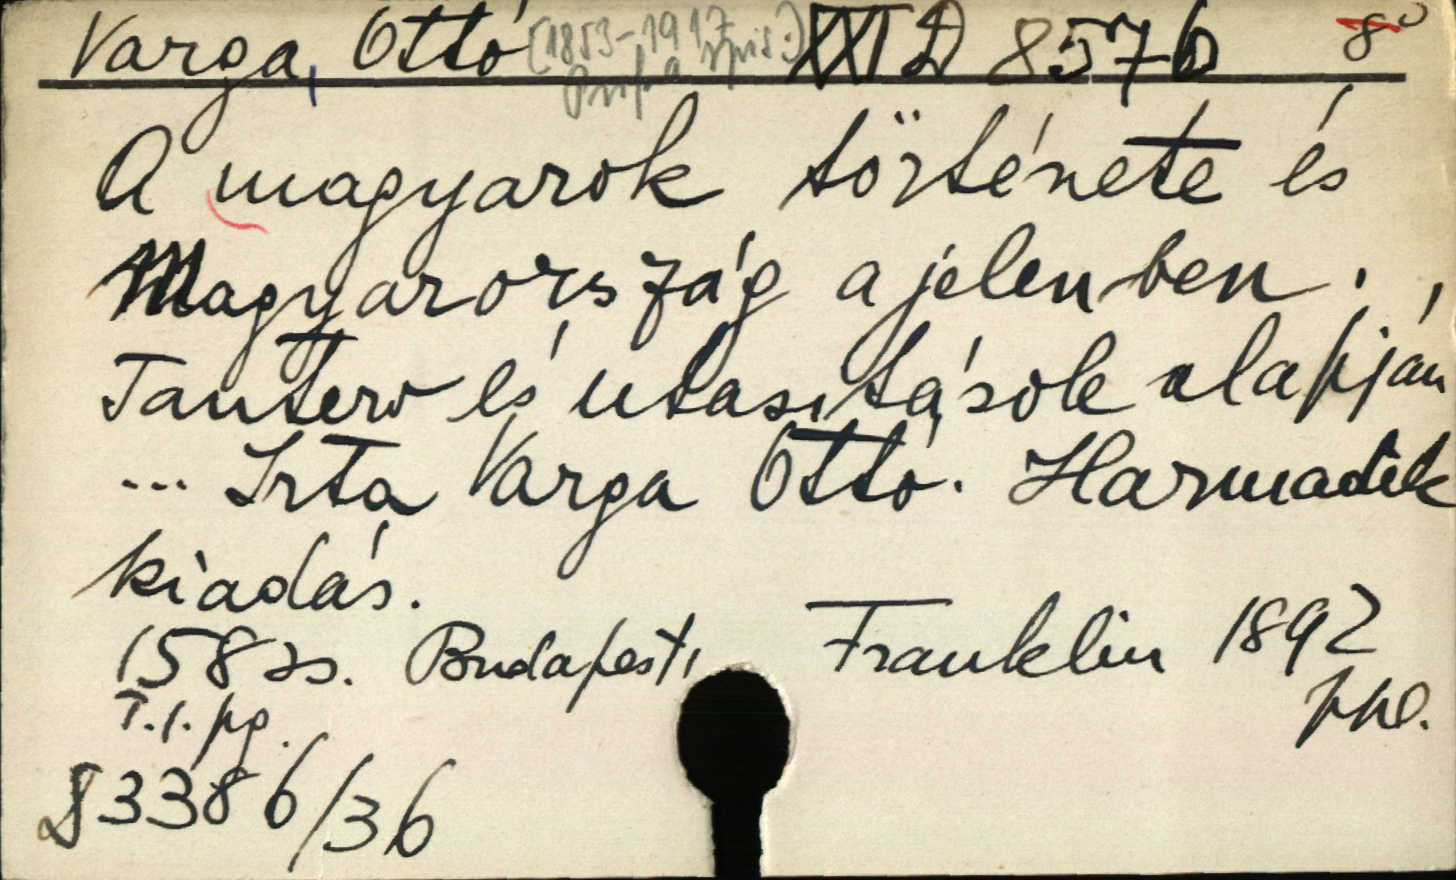 Varga, Ottó (1853-1917 XXI D 8576 8°
A magyarok története és
Magyarország a jelenben.
Tanterv és utasítások alapján
... Irta Varga Ottó. Harmadik
kiadás.
158 ss. Budapest, Franklin 1892
T.l. pg. ppl.
§ 3386/36